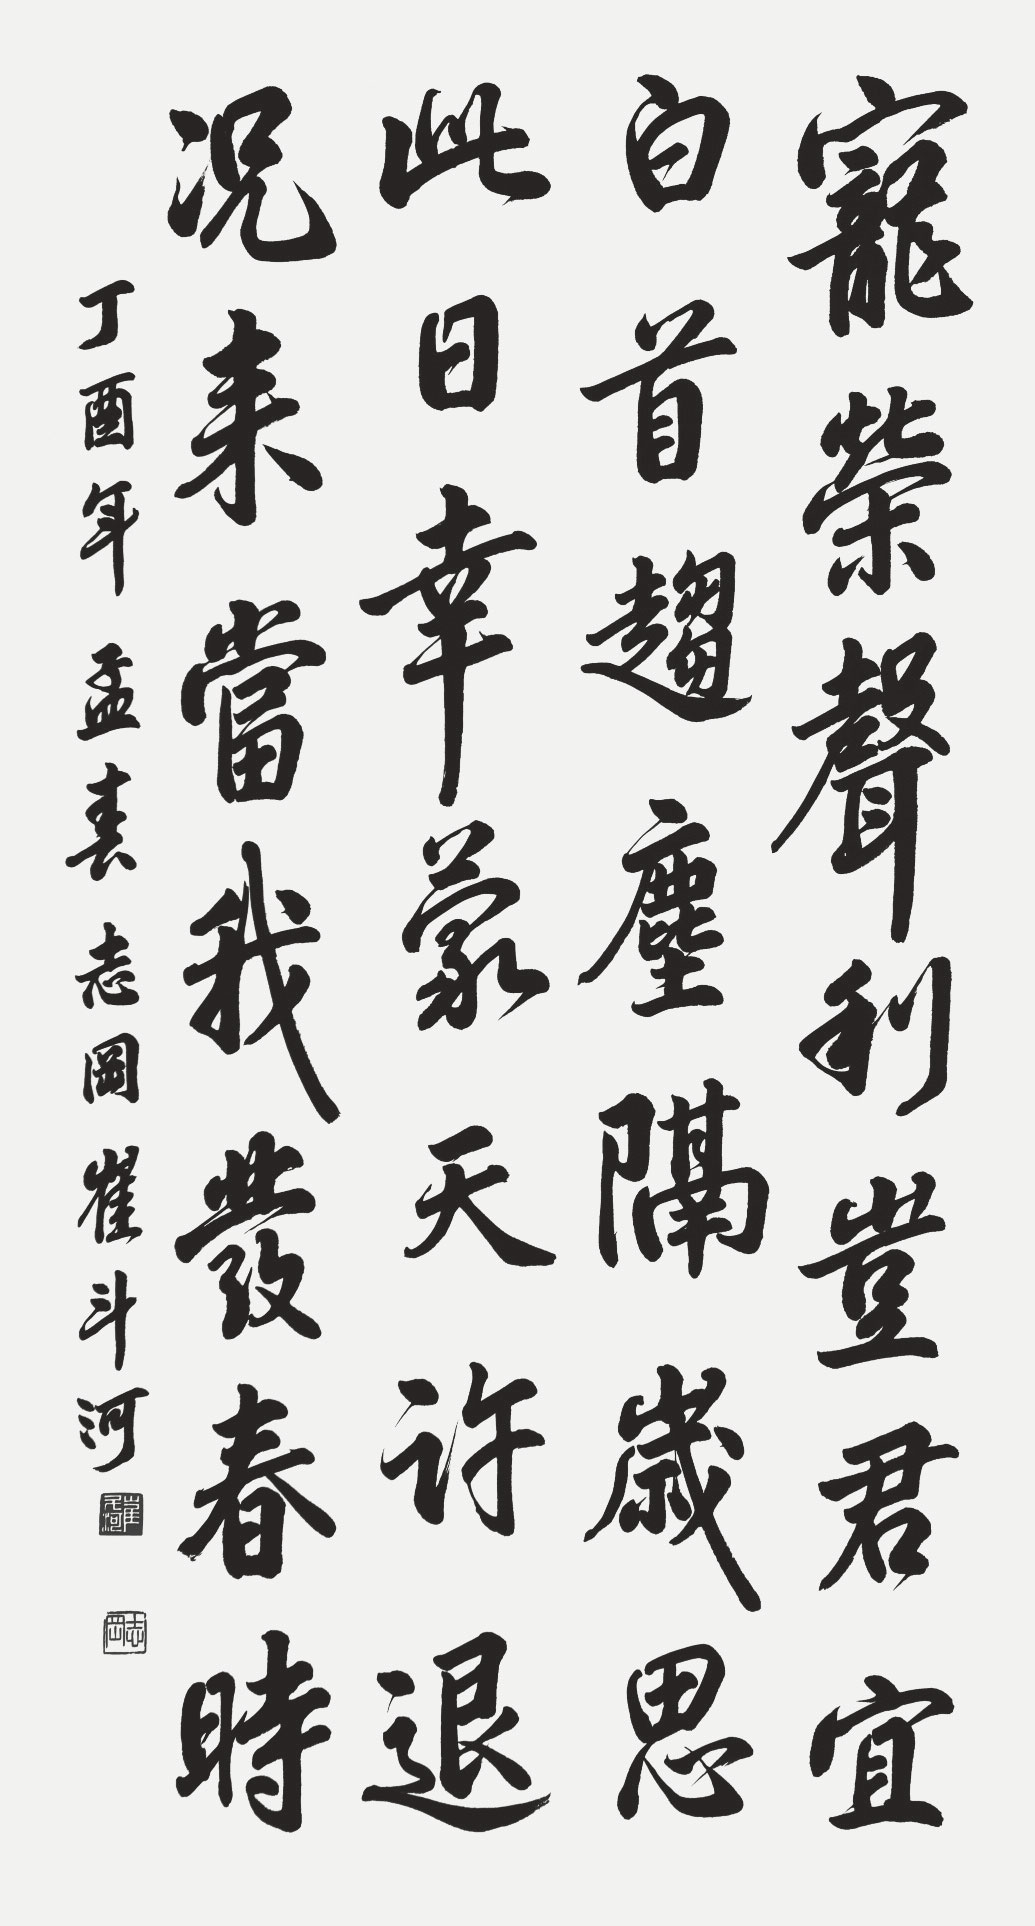 寵榮聲利豈君宜
白首趨塵隔歲思
此日幸蒙天許退
况来當我發春時
丁酉年 孟春 志岡 崔斗河
崔斗河
志岡